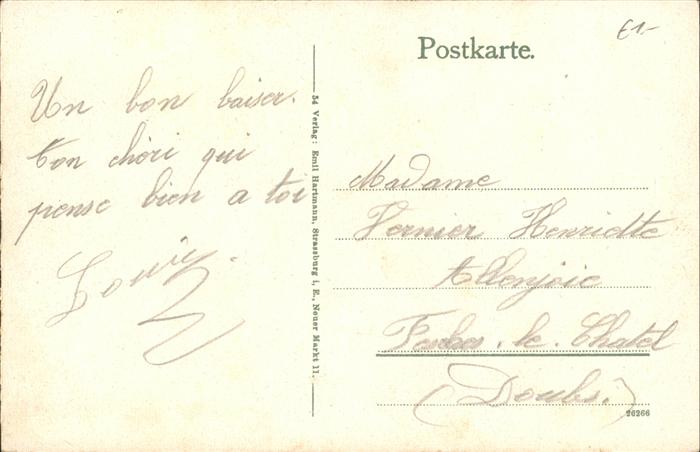 Postkarte.
£1-
Un bon baiser.
ton chéri qui
pense bien a toi
Louis.
54 Verlag: Emil Hartmann, Strassburg i. E., Neuer Markt 11.
Madame
Vernier Henriette
Allenjoie
le Chatel
(Doubs.)
26266